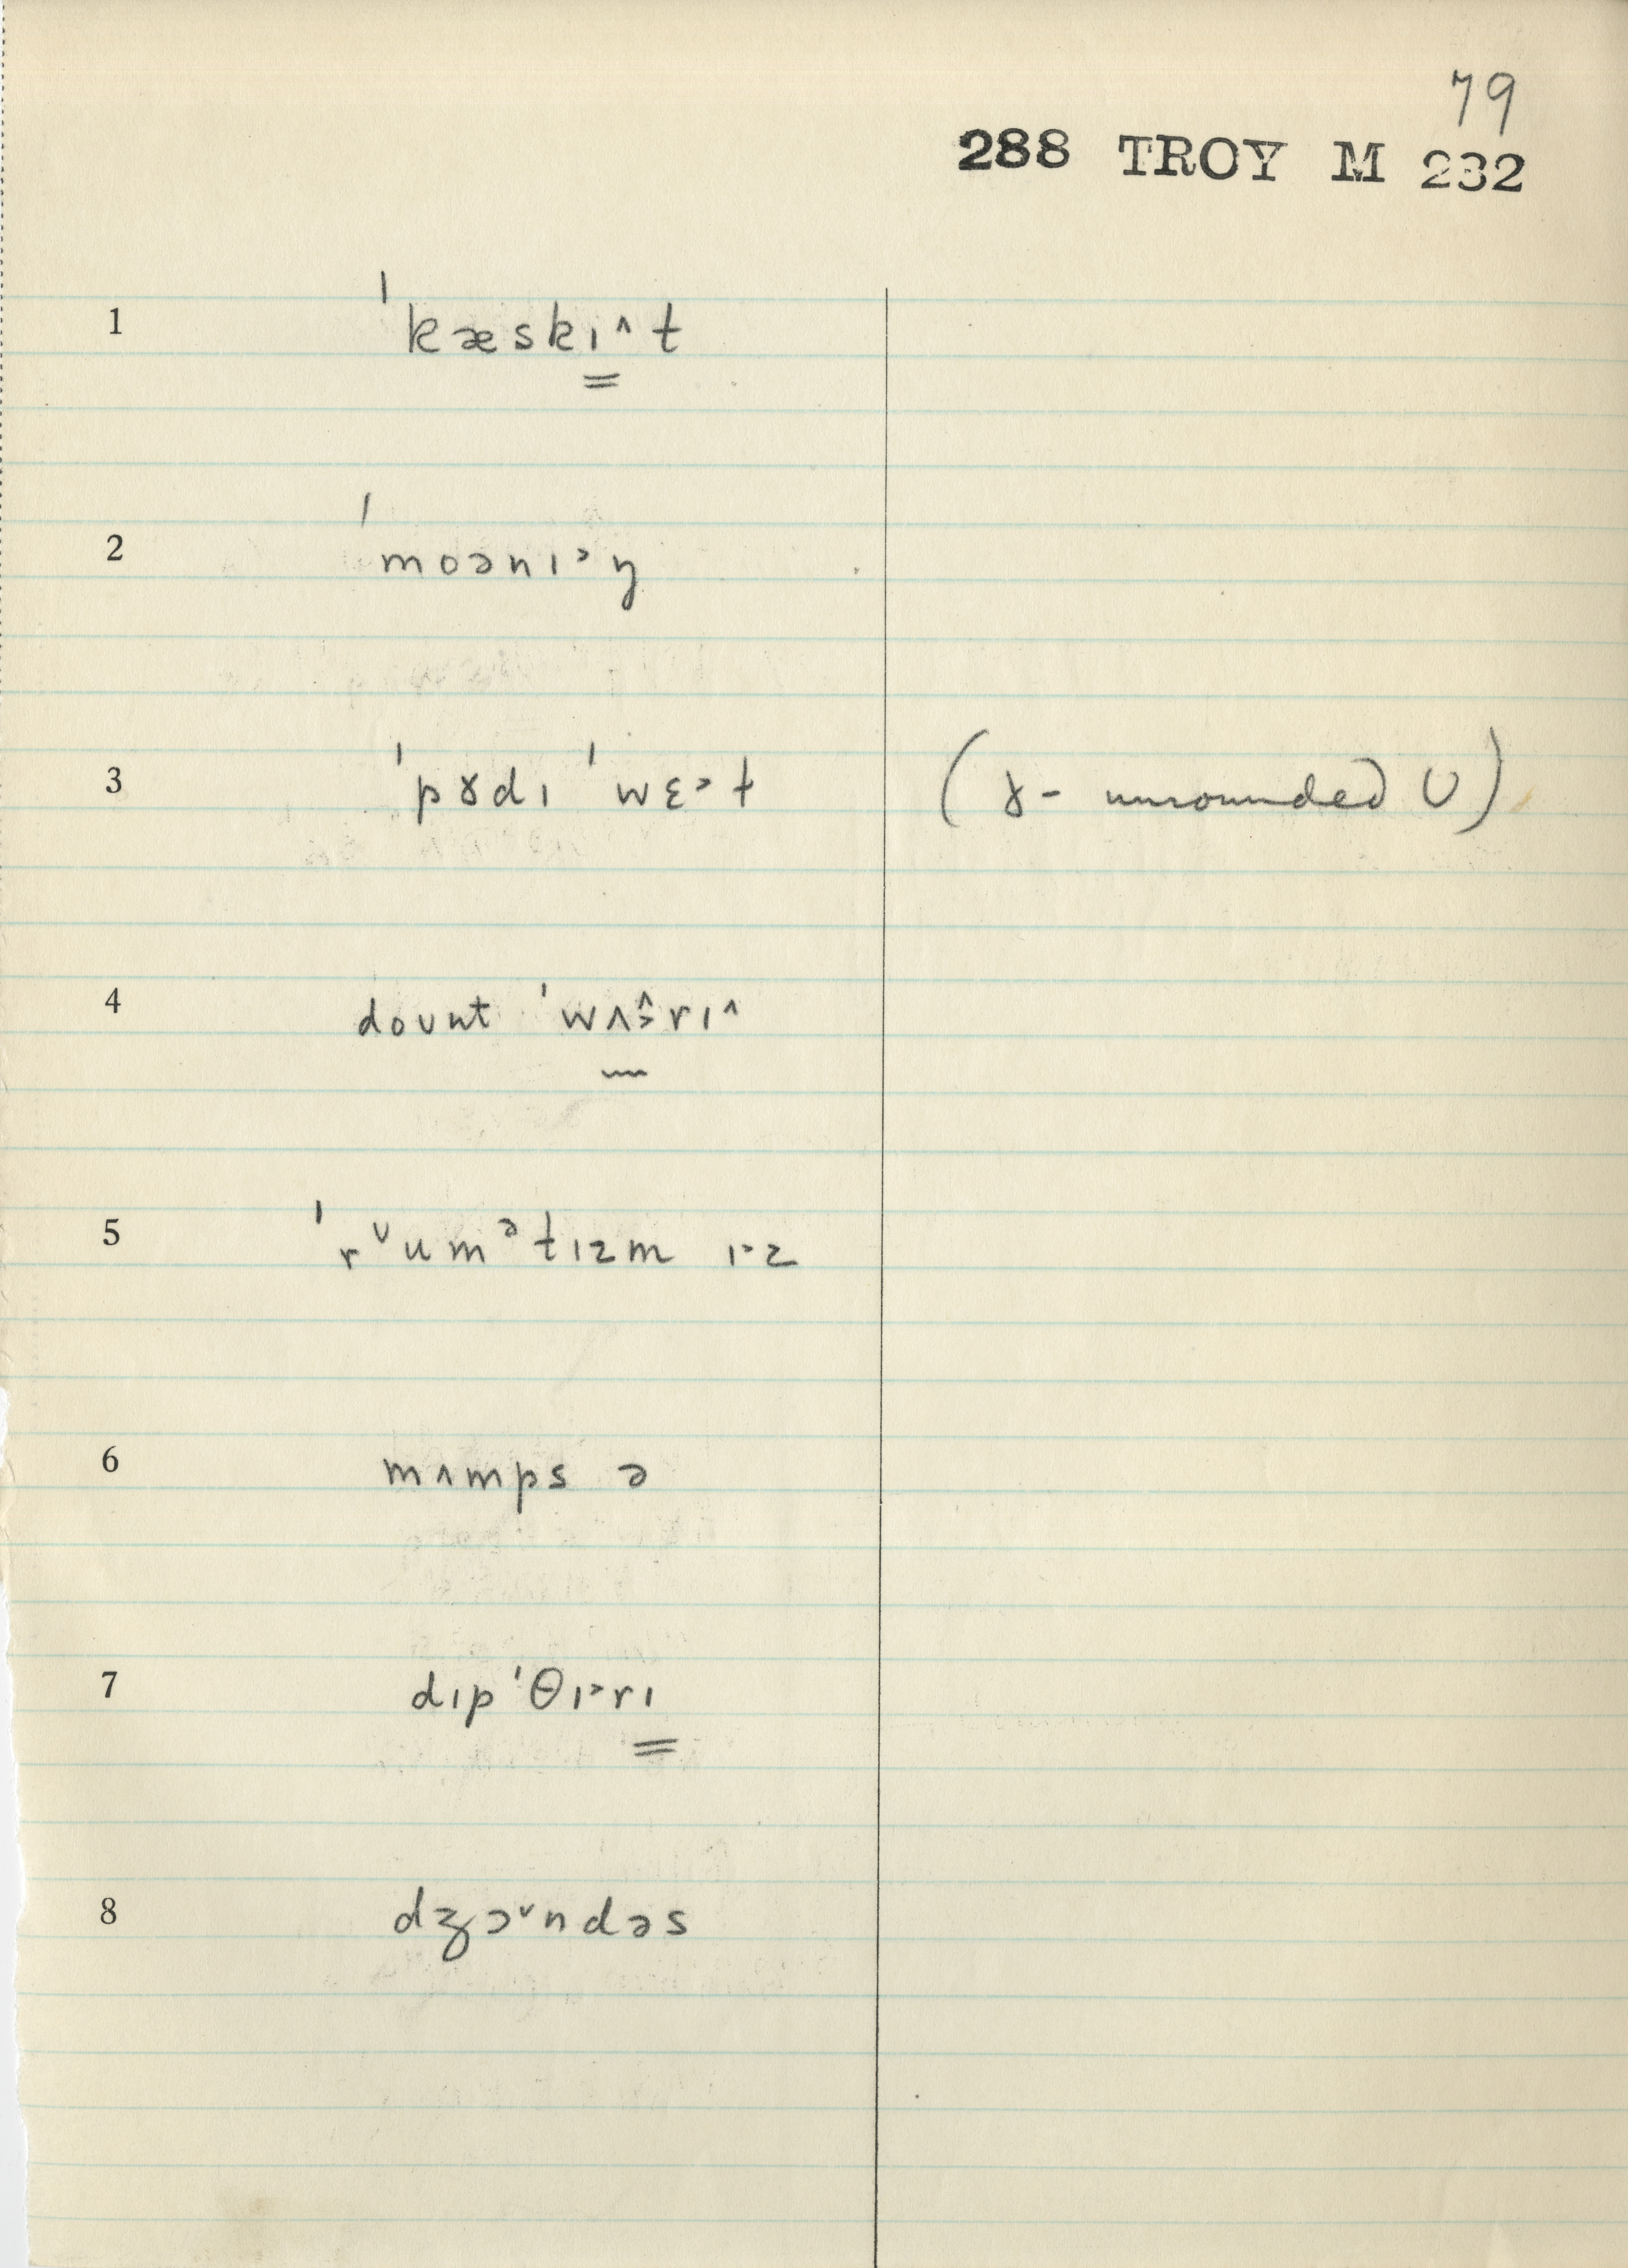 79
288 TROY M 232
1 ˈkæskɪ˄t
2 ˈmoənɪ˃ŋ
3 ˈpɤdɪ ˈwɛ˃t (ɤ- unrounded ʊ)
4 doʊnt ˈwʌ˄˃rɪ˄
5 ˈrᶷumᵊtɪzm ɪ˃z
6 mʌmps ə
7 dɪpˈθɪ˃rɪ
8 dʒɔ˅ndəs